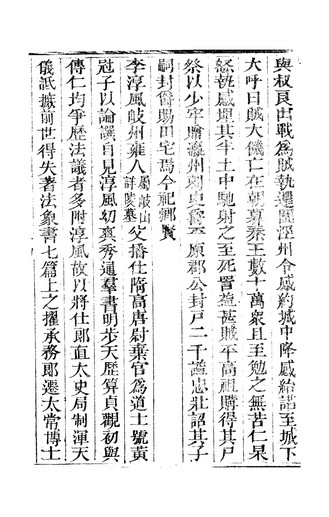 與叔良出戰為賊執還圍涇州令感約城中降感紿諾至城下
大呼曰賊大饑亡在朝暮秦王數十萬衆且至勉之無苦仁杲
怒執感埋其半土中馳射之至死詈益甚賊平高祖購得其尸
祭以少牢贈瀛州刺史爵平原郡公封戶二千謚忠壯詔其子
嗣封爵賜田宅焉今祀鄉賢
李淳風岐州雍人屬岐山詳陵墓父播仕隋高唐尉棄官為道士號黃
冠子以論譔自見淳風幼爽秀通羣書明步天歷算貞觀初與
傳仁均爭歷法議者多附淳風故以將仕郎直太史局制渾天
儀詆摭前世得失著法象書七篇上之擢承務郎遷太常博士